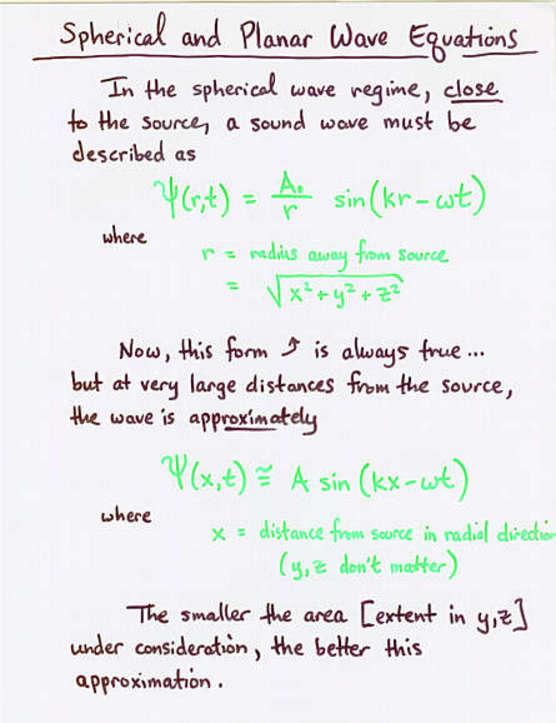 Spherical and Planar Wave Equations
In the spherical wave regime, close
to the source, a sound wave must be
described as
Ψ(r,t) = A₀/r sin(kr - ωt)
where
r = radius away from source
= √(x² + y² + z²)
Now, this form ⤴ is always true...
but at very large distances from the source,
the wave is approximately
Ψ(x,t) ≅ A sin (kx - ωt)
where
x = distance from source in radial direction
(y,z don't matter)
The smaller the area [extent in y,z]
under consideration, the better this
approximation.